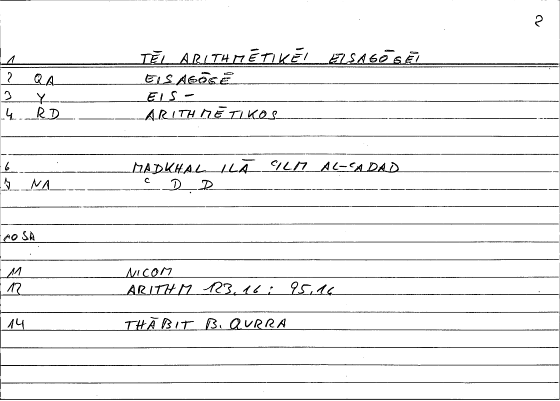 2
1 TĒI ARITHMĒTIKĒI EISAGŌGĒI
2 QA EISAGŌGĒ
3 Y EIS-
4 RD ARITHMĒTIKOS
6 MADKHAL ILĀ ʿILM AL-ʿADAD
7 NA ʿ D D
10 SA
11 NICOM
12 ARITHM 123,16 ; 95,16
14 THĀBIT B. QURRA